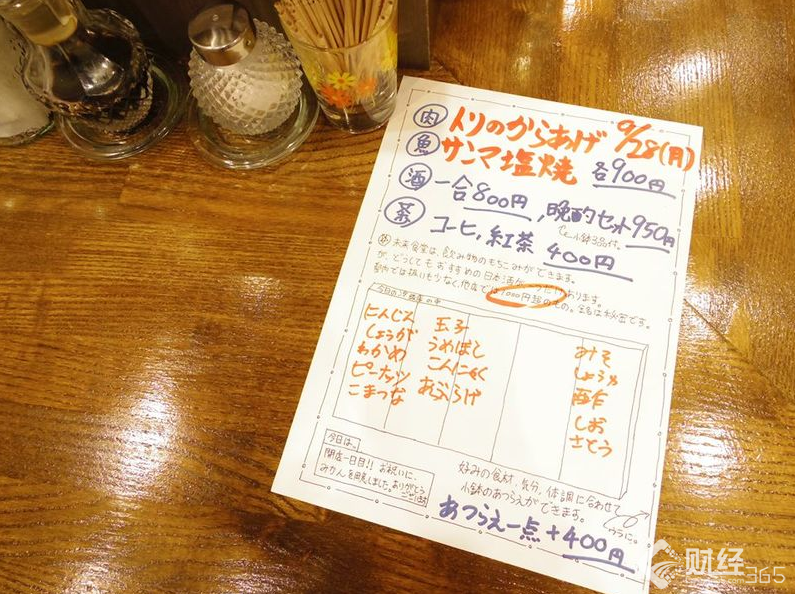 肉 トリのからあげ 9/28(月)
魚 サンマ塩焼 各900円
酒 一合800円,晩酌セット950円
茶 コーヒ,紅茶 400円
未来食堂は、飲み物のもちこみができます。
が、どうしてもおすすめの日本酒が一つだけあります。
都内では扱いも少なく、他店では1000円超のもの。銘は秘密です。
今日の冷蔵庫の中
にんじん
しょうが
わかめ
ピーナッツ
こまつな
玉子
うめぼし
こんにゃく
あぶらげ
みそ
しょうゆ
酢
しお
さとう
今日は、
開店一日目!! お祝いに、
みかんを用意しました。ありがとう
好みの食材、気分、体調に合わせて
小鉢のあつらえができます。
ウラに。
あつらえ一点+400円
财经365